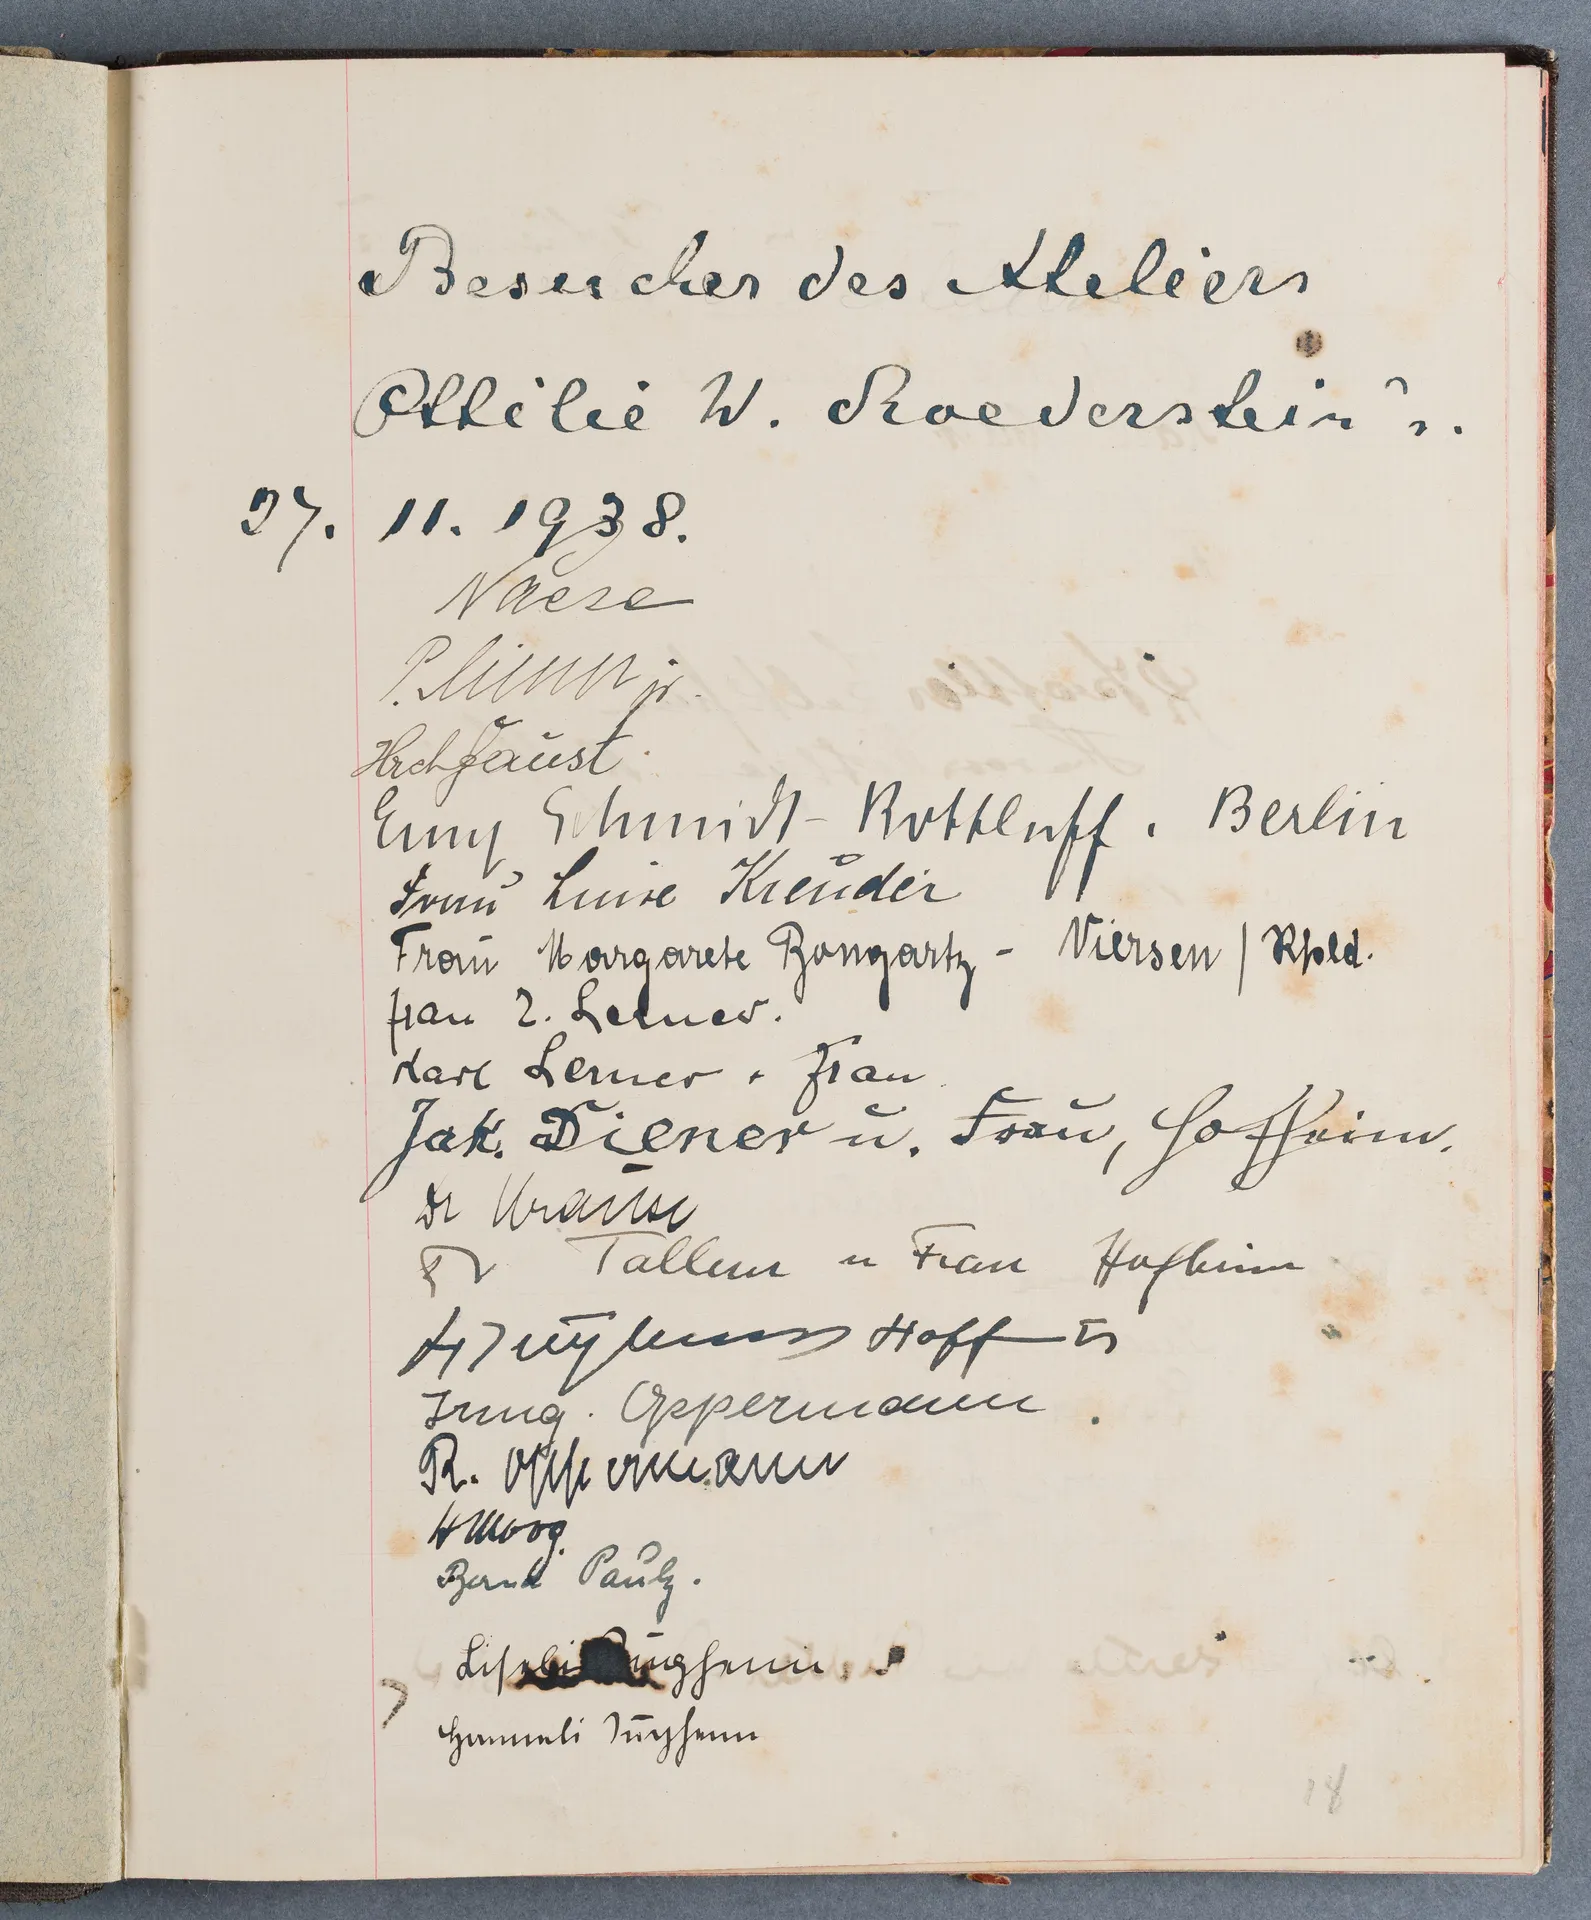 Besucher des Ateliers
Ottilie W. Roederstein's.
27. 11. 1938.
Naese
P. jr.
Hrch Faust.
Emy Schmidt-Rottluff. Berlin
Frau Luise Kreuder
Frau Margarete Bongartz - Viersen / Rhld.
Frau L. Lerner.
Karl Lerner + Frau
Jak. Diener u. Frau, Hofheim.
Dr Krause
Dr u Frau Hofheim
Hoff
Irmg. Oppermann.
R. Oppermann
H Moog.
Bernd Paulz.
Liselei Jughenn.
Hanneli Jughenn
18